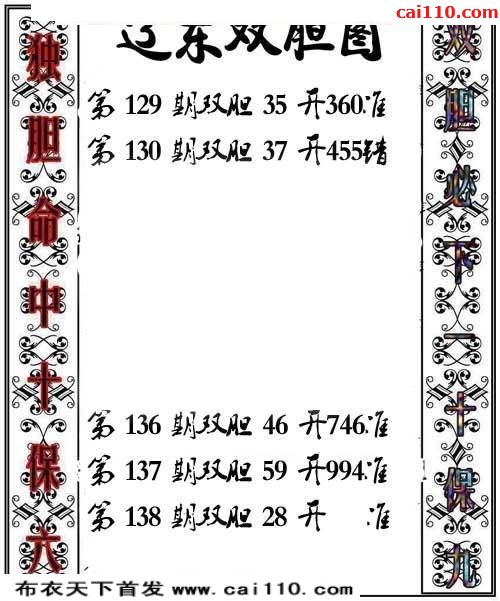 彩吧论坛
cai110.com
辽东双胆图
独胆命中十保六
第 129 期双胆 35 开360准
第 130 期双胆 37 开455错
第 136 期双胆 46 开746准
第 137 期双胆 59 开994准
第 138 期双胆 28 开 准
双胆必下一十保九
布衣天下首发 www.cai110.com